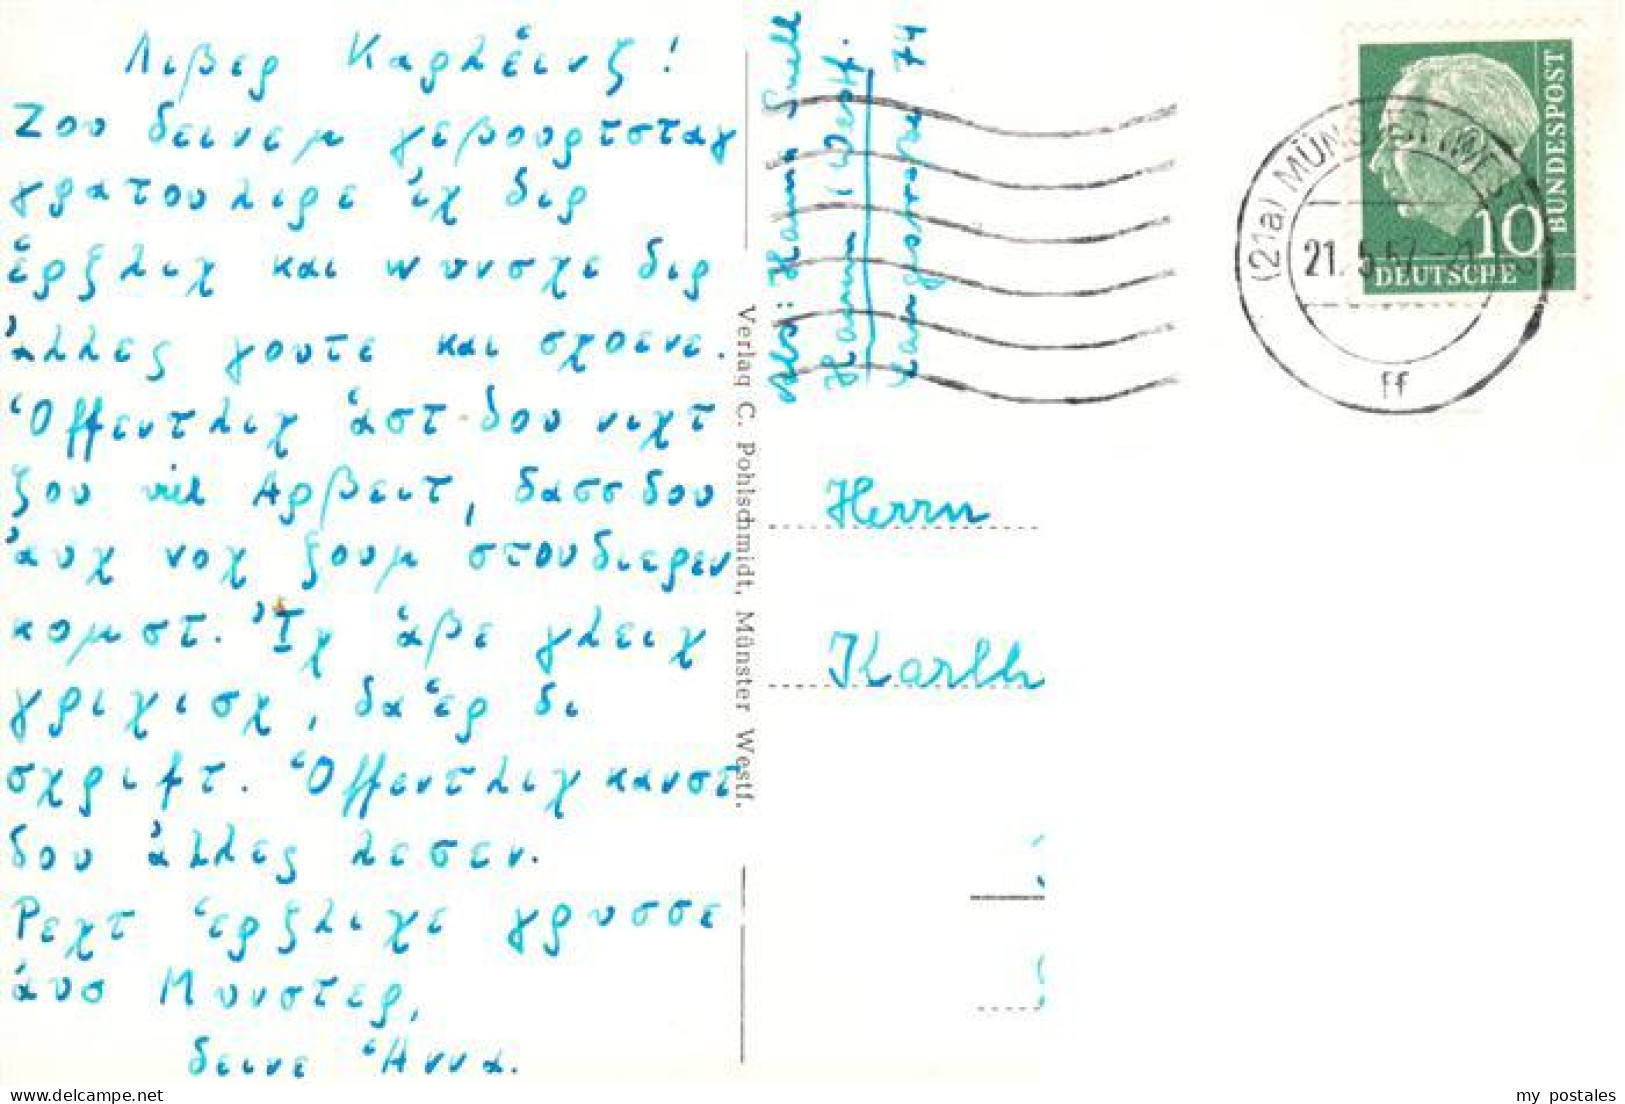 Λιβερ Καρλἑινζ!
Ζου δεινεμ γεβουρτσταγ
γρατουλιρε ἰχ διρ
ἑρζλιχ και wυνσχε διρ
ἀλλες γουτε και σχοενε.
Ὁffεντλιχ ἁστ δου νιχτ
ζου viελ Αρβειτ, δασσ δου
ἀυχ νοχ ζουμ στουδιερεν
κομστ. Ἰχ ἁβε γλειχ
γριχισχ, δα ἑρ δι
σχριfτ. Ὁffεντλιχ κανστ
δου ἀλλες λεσεν.
Ρεχτ ἑρζλιχε γρυσσε
ἀυσ Μυνστερ,
δεινε Ἁννα.
Verlag C. Pohlschmidt, Münster Westf.
Abs: Hanna
Hamm (Westf.
74
(21a) MÜNSTER (WESTF
21.5.57-21
ff
10
DEUTSCHE
BUNDESPOST
Herrn
Karlh
delcampe.net
my_postales